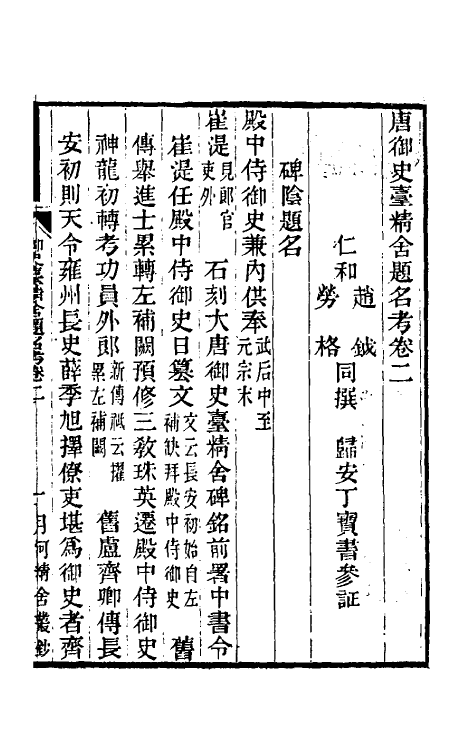 唐御史臺精舍題名考卷二
仁和
趙鉞
勞格
同撰　歸安丁寶書參証
碑陰題名
殿中侍御史兼內供奉武后中至元宗末
崔湜見郎官吏外　石刻大唐御史臺精舍碑銘前署中書令
崔湜任殿中侍御史日纂文文云長安初始自左補缺拜殿中侍御史　舊
傳舉進士累轉左補闕預修三敎珠英遷殿中侍御史
神龍初轉考功員外郎新傳祗云擢累左補闕　舊盧齊卿傳長
安初則天令雍州長史薛季旭擇僚吏堪為御史者齊
御史臺精舍題名考卷二
一　月河精舍叢鈔